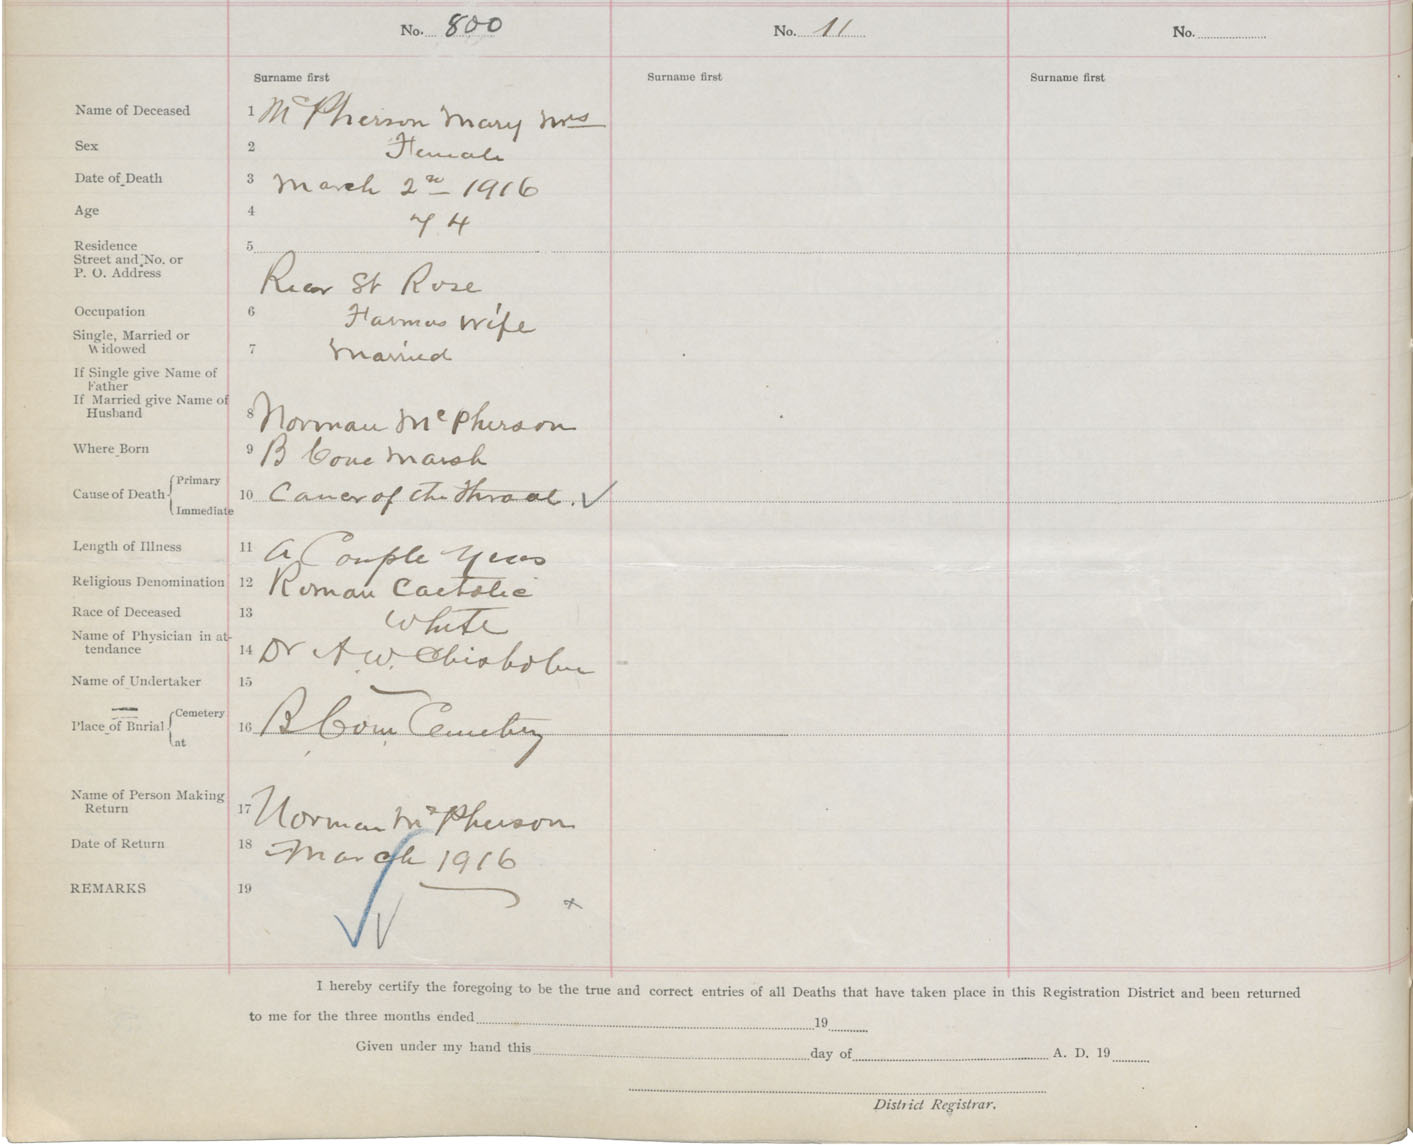 No. 800 No. 11 No.
Surname first Surname first Surname first
Name of Deceased 1 McPherson Mary Mrs
Sex 2 Female
Date of Death 3 March 2nd 1916
Age 4 74
Residence 5
Street and No. or
P. O. Address Rear St Rose
Occupation 6 Farmers Wife
Single, Married or
Widowed 7 Married
If Single give Name of
Father
If Married give Name of
Husband 8 Norman McPherson
Where Born 9 B Cove Marsh
Cause of Death Primary
10 Cancer of the Throat.
Immediate
Length of Illness 11 A Couple Years
Religious Denomination 12 Roman Catholic
Race of Deceased 13 White
Name of Physician in at-
tendance 14 Dr A. W. Chisholm
Name of Undertaker 15
Place of Burial Cemetery
16 B Cove Cemetery
at
Name of Person Making
Return 17 Norman McPherson
Date of Return 18 March 1916
REMARKS 19
I hereby certify the foregoing to be the true and correct entries of all Deaths that have taken place in this Registration District and been returned
to me for the three months ended 19
Given under my hand this day of A. D. 19
District Registrar.